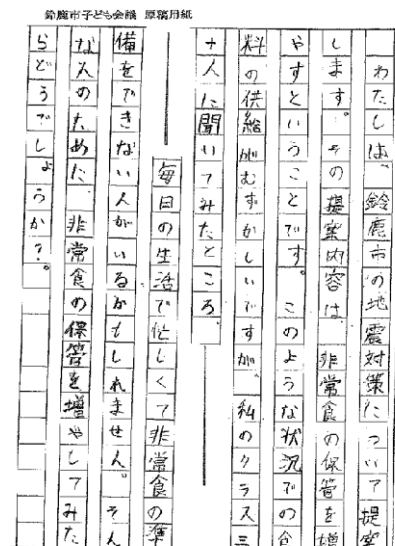 鈴鹿市子ども会議 原稿用紙
わたしは、鈴鹿市の地震対策について提案
します。その提案内容は、非常食の保管を増
やすということです。このような状況での食
料の供給がむずかしいですが、私のクラス三
十人に聞いてみたところ、
毎日の生活で忙しくて非常食の準
備をできない人がいるかもしれません。そん
な人のために、非常食の保管を増やしてみた
らどうでしょうか?。